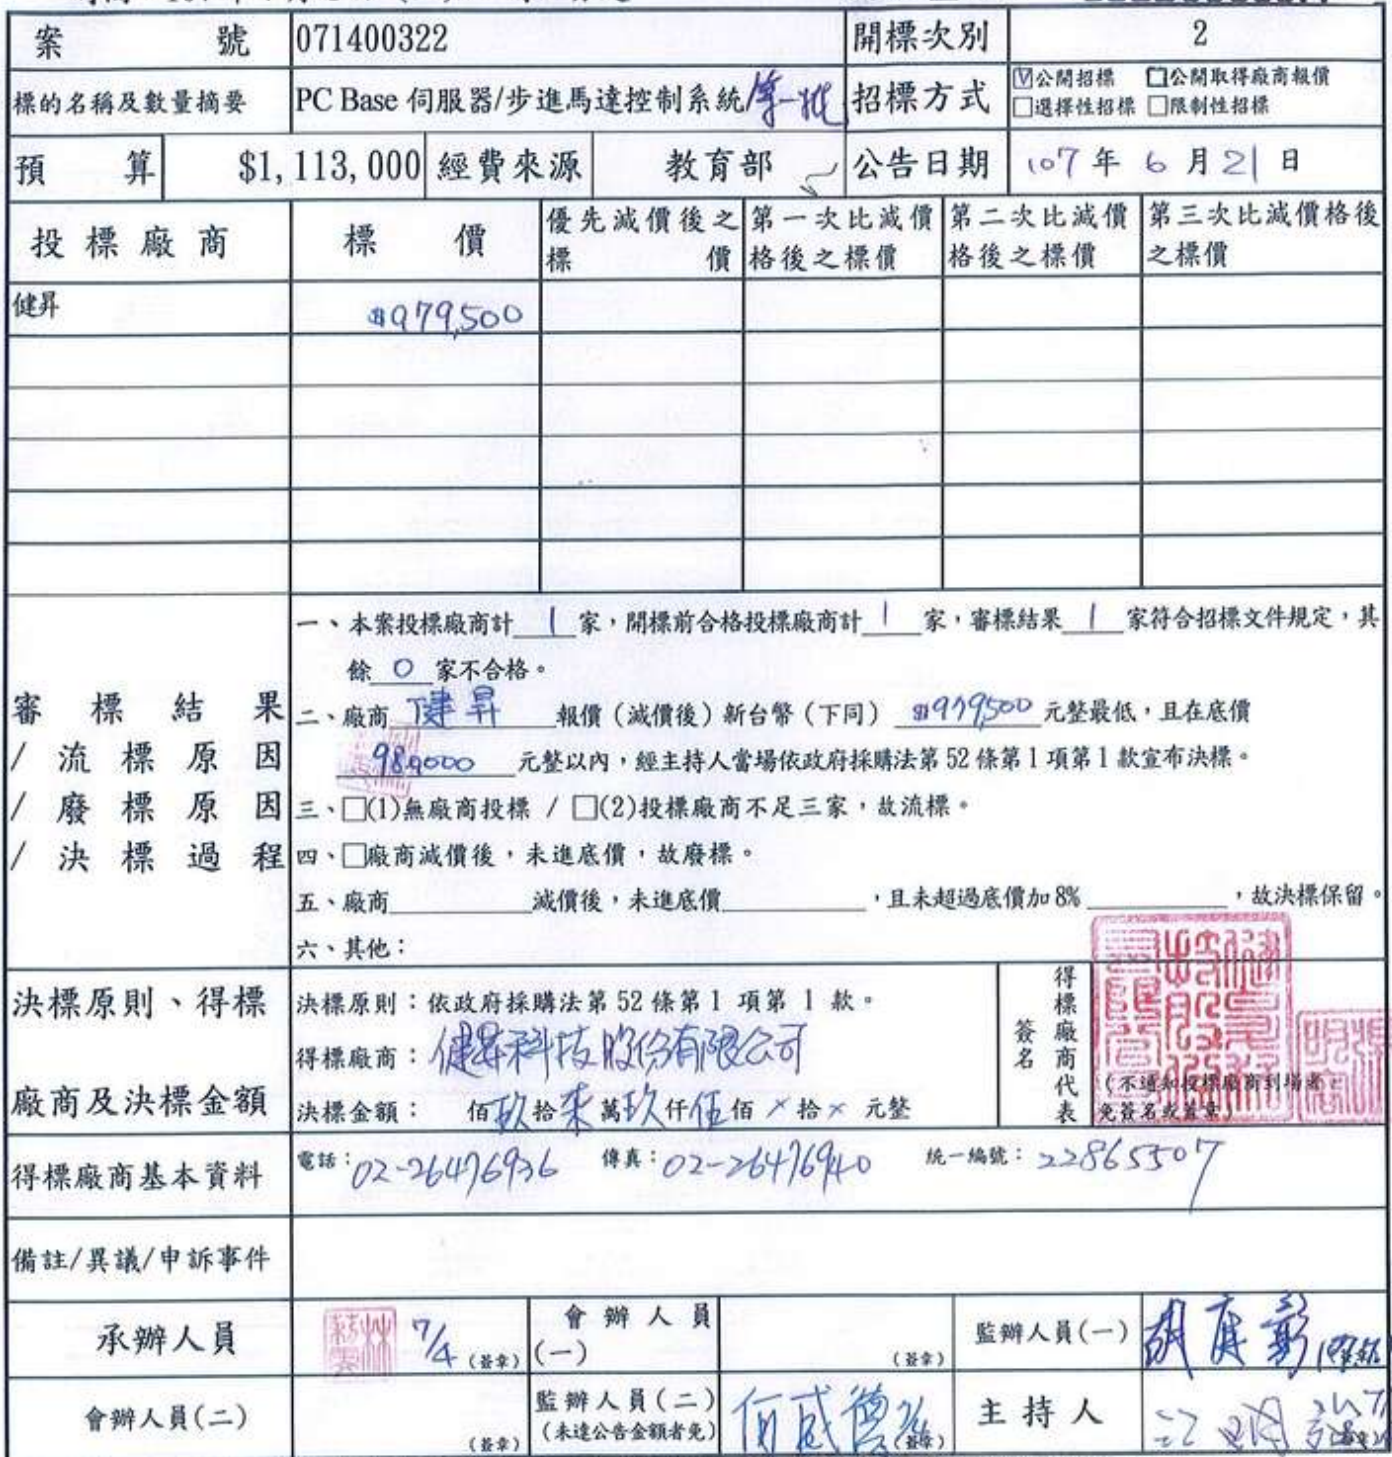 案 號 071400322 開標次別 2
標的名稱及數量摘要 PC Base 伺服器/步進馬達控制系統等一批 招標方式 ☑公開招標 □公開取得廠商報價
□選擇性招標 □限制性招標
預 算 $1,113,000 經費來源 教育部 公告日期 107 年 6 月 21 日
投標廠商 標 價 優先減價後之標 價 第一次比減價格後之標價 第二次比減價格後之標價 第三次比減價格後之標價
健昇 $979,500
審標結果/流標原因/廢標原因/決標過程
一、本案投標廠商計 1 家,開標前合格投標廠商計 1 家,審標結果 1 家符合招標文件規定,其
餘 0 家不合格。
二、廠商 健昇 報價(減價後)新台幣(下同) $979,500 元整最低,且在底價
980000 元整以內,經主持人當場依政府採購法第 52 條第 1 項第 1 款宣布決標。
三、□(1)無廠商投標 / □(2)投標廠商不足三家,故流標。
四、□廠商減價後,未進底價,故廢標。
五、廠商 減價後,未進底價 ,且未超過底價加 8% ,故決標保留。
六、其他:
決標原則、得標廠商及決標金額
決標原則:依政府採購法第 52 條第 1 項第 1 款。
得標廠商:健昇科技股份有限公司
決標金額: 佰玖拾柒萬玖仟伍佰×拾×元整
得標廠商代表簽名
(不通知投標廠商到場者,
免簽名或蓋章)
得標廠商基本資料 電話:02-26476936 傳真:02-26476940 統一編號:22865507
備註/異議/申訴事件
承辦人員 7/4 (簽章) 會辦人員(一) (簽章) 監辦人員(一)
會辦人員(二) (簽章) 監辦人員(二)(未達公告金額者免) (簽章) 主持人